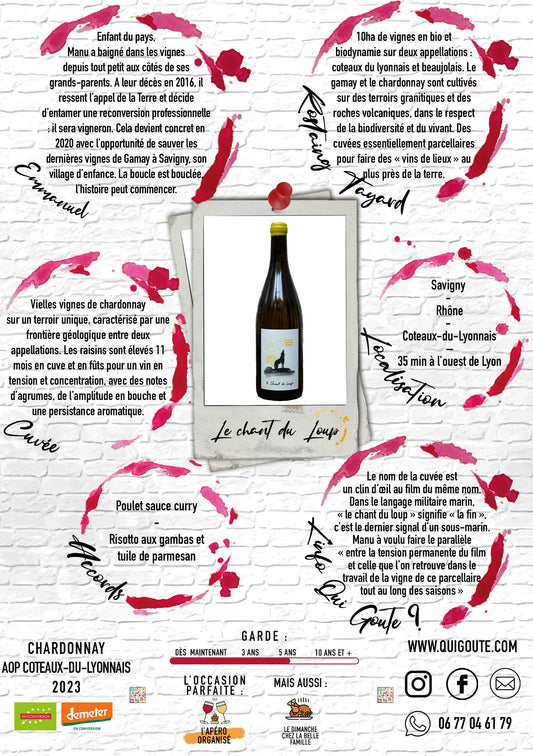 Enfant du pays,
Manu a baigné dans les vignes
depuis tout petit aux côtés de ses
grands-parents. A leur décès en 2016, il
ressent l'appel de la Terre et décide
d'entamer une reconversion professionnelle
: il sera vigneron. Cela devient concret en
2020 avec l'opportunité de sauver les
dernières vignes de Gamay à Savigny, son
village d'enfance. La boucle est bouclée,
l'histoire peut commencer.
Emmanuel
10ha de vignes en bio et
biodynamie sur deux appellations :
coteaux du lyonnais et beaujolais. Le
gamay et le chardonnay sont cultivés
sur des terroirs granitiques et des
roches volcaniques, dans le respect
de la biodiversité et du vivant. Des
cuvées essentiellement parcellaires
pour faire des « vins de lieux » au
plus près de la terre.
Rostaing
Tayard
Vieilles vignes de chardonnay
sur un terroir unique, caractérisé par une
frontière géologique entre deux
appellations. Les raisins sont élevés 11
mois en cuve et en fûts pour un vin en
tension et concentration, avec des notes
d'agrumes, de l'amplitude en bouche et
une persistance aromatique.
Cuvée
Le chant du Loup
Le chant du Loup
Savigny
–
Rhône
–
Coteaux-du-Lyonnais
–
35 min à l'ouest de Lyon
Localisation
Poulet sauce curry
–
Risotto aux gambas et
tuile de parmesan
Accords
Le nom de la cuvée est
un clin d'œil au film du même nom.
Dans le langage militaire marin,
« le chant du loup » signifie « la fin »,
c'est le dernier signal d'un sous-marin.
Manu à voulu faire le parallèle
« entre la tension permanente du film
et celle que l'on retrouve dans le
travail de la vigne de ce parcellaire
tout au long des saisons »
L'info Qui Goute ?
CHARDONNAY
AOP COTEAUX-DU-LYONNAIS
2023
EN CONVERSION
demeter
EN CONVERSION
GARDE :
DÈS MAINTENANT 3 ANS 5 ANS 10 ANS ET +
L'OCCASION
PARFAITE :
L'APÉRO
ORGANISÉ
MAIS AUSSI :
LE DIMANCHE
CHEZ LA BELLE
FAMILLE
WWW.QUIGOUTE.COM
06 77 04 61 79